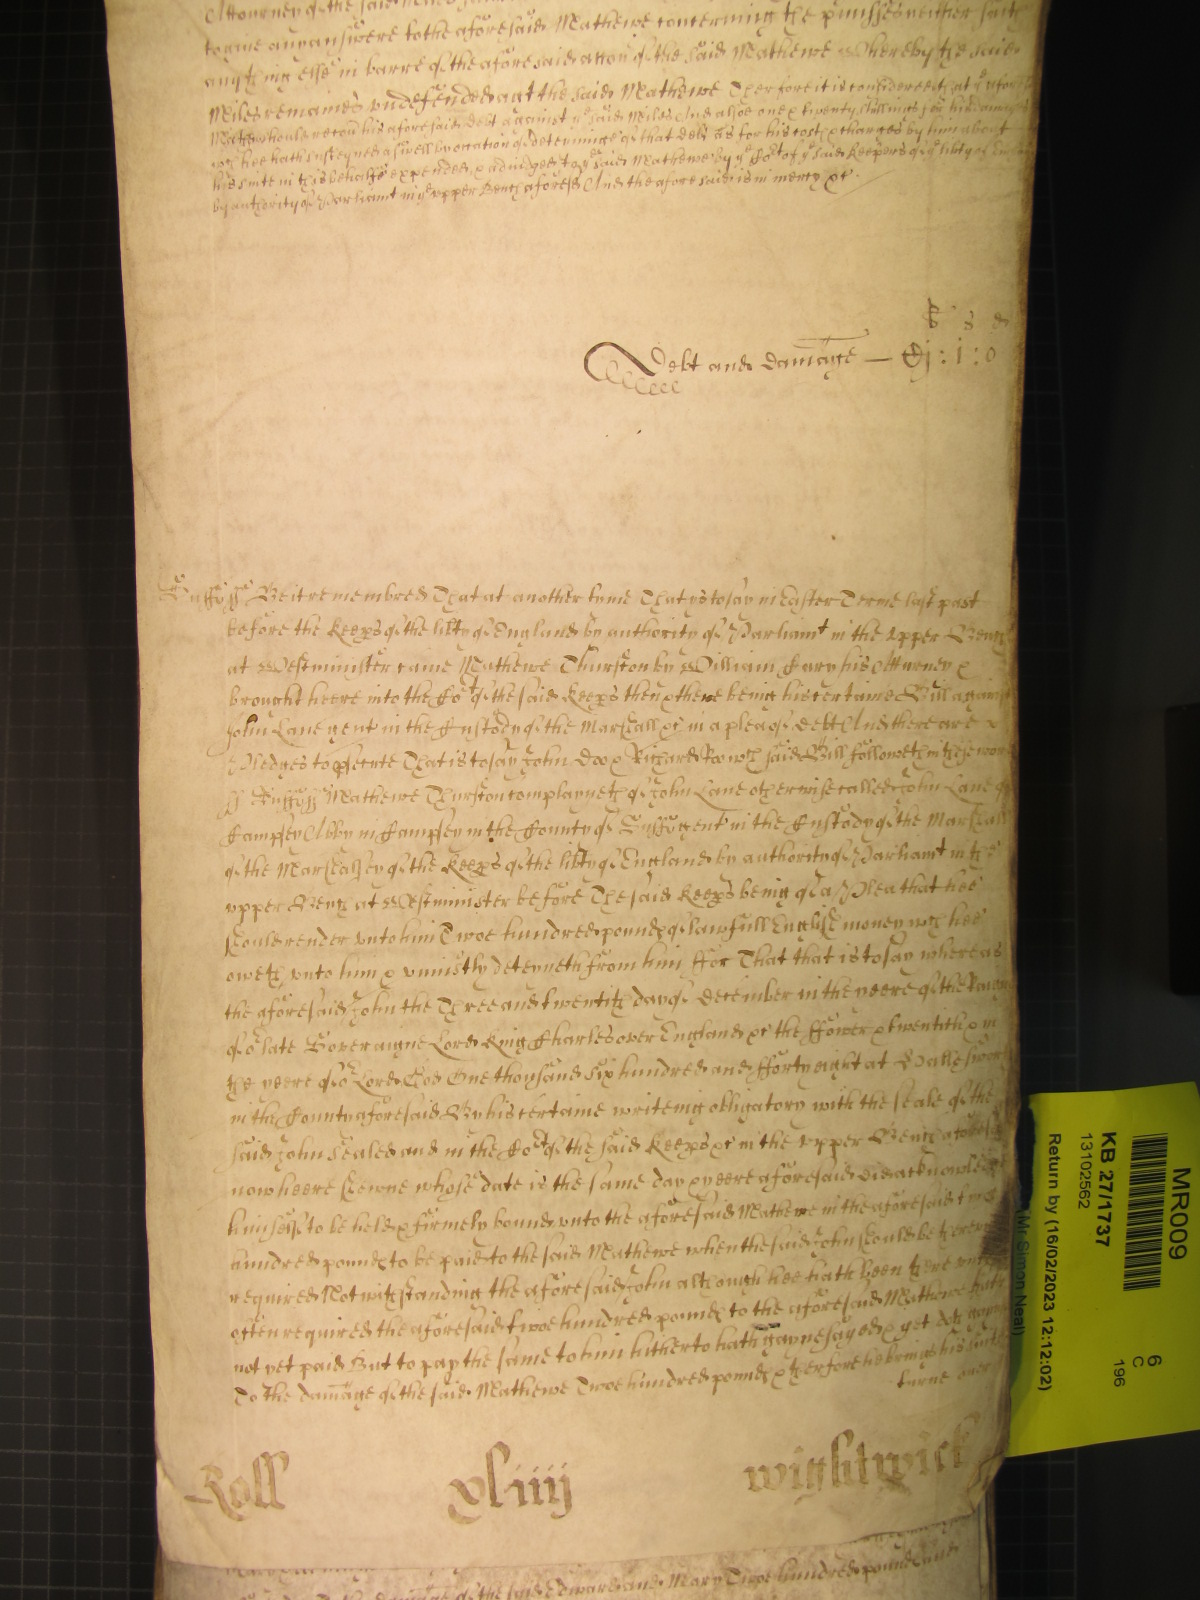 Attourney of the said Miles
to give any answere to the aforesaid Mathewe concerning the p'misses neither saith
any thing else in barre of the aforesaid accon of the said Mathewe Whereby the said
Miles remaines undefended agt the said Mathewe Therfore it is considered that ye aforesd
Mathew should recover his aforesaid debt against ye said Miles And alsoe one & twenty shillings for his damages
wch hee hath susteyned aswell by occation of deteyninge of that debt as for his costs & charges by him about
his suite in this behalfe expended & adjudged to ye said Mathewe by ye Cort of ye said Keepers of ye lib'ty of England
by authority of Parliamt in ye upper Bench aforesd And the aforesaid is in mercy &c.
li s d
Debt and damage — : 1 : 0
Suff ss Be it remembred That at another tyme That ys to say in Easter Terme last past
before the Keep's of the lib'ty of England by authority of Parliamt in the upper Bench
at Westminister came Mathewe Thurston by William Cary his Atturney &
brought heere into the Cort of the said Keep's then & there being his certaine Bill against
John Lane gent in the Custody of the Marshall &c in a plea of debt And there are
Pledges to p'secute That is to say John Doo & Richard Roo wch said Bill followeth in these words
ss Suff ss Mathewe Thurston complayneth of John Lane otherwise called John Lane of
Campsey Abby in Campsey in the County of Suff gent in the Custody of the Marshall
of the Marshalsey of the Keep's of the lib'ty of England by authority of Parliamt in the
upper Bench at Westminister before The said Keep's being of a Plea that hee
should render unto him Twoe hundred pounds of lawfull English money wch hee
oweth unto him & uniustly deteyneth from him ffor That that is to say whereas
the aforesaid John the Three and twentith day of December in the yeere of the Raigne
of or late Soveraigne Lord King Charles over England &c the ffower & twentith & in
the yeere of or Lord God One thousand six hundred and fforty eight at
in the County aforesaid By his certaine writeing obligatory with the seale of the
said John Sealed and in the Cort of the said Keep's &c in the upper Bench aforesd
now heere shewne whose date is the same day & yeere aforesaid did acknowledge
himselfe to be held & firmely bound unto the aforesaid Mathewe in the aforesaid twoe
hundred pounds to be paid to the said Mathewe when the said John should be thereunto
required Notwithstanding the aforesaid John although hee hath been there unto
often required the aforesaid twoe hundred pounds to the aforesaid Mathewe hath
not yet paid But to pay the same to him hitherto hath gaynesayed & yet doth gaynesay
To the damage of the said Mathewe Twoe hundred pounds & therfore he brings his suite
turne over
Roll xliiij wightwick
of the said Edward and Mary Twoe hundred pounds and
MR009
6
C
196
KB 27/1737
13102562
Return by (16/02/2023 12:12:02)
(Mr Simon Neal)